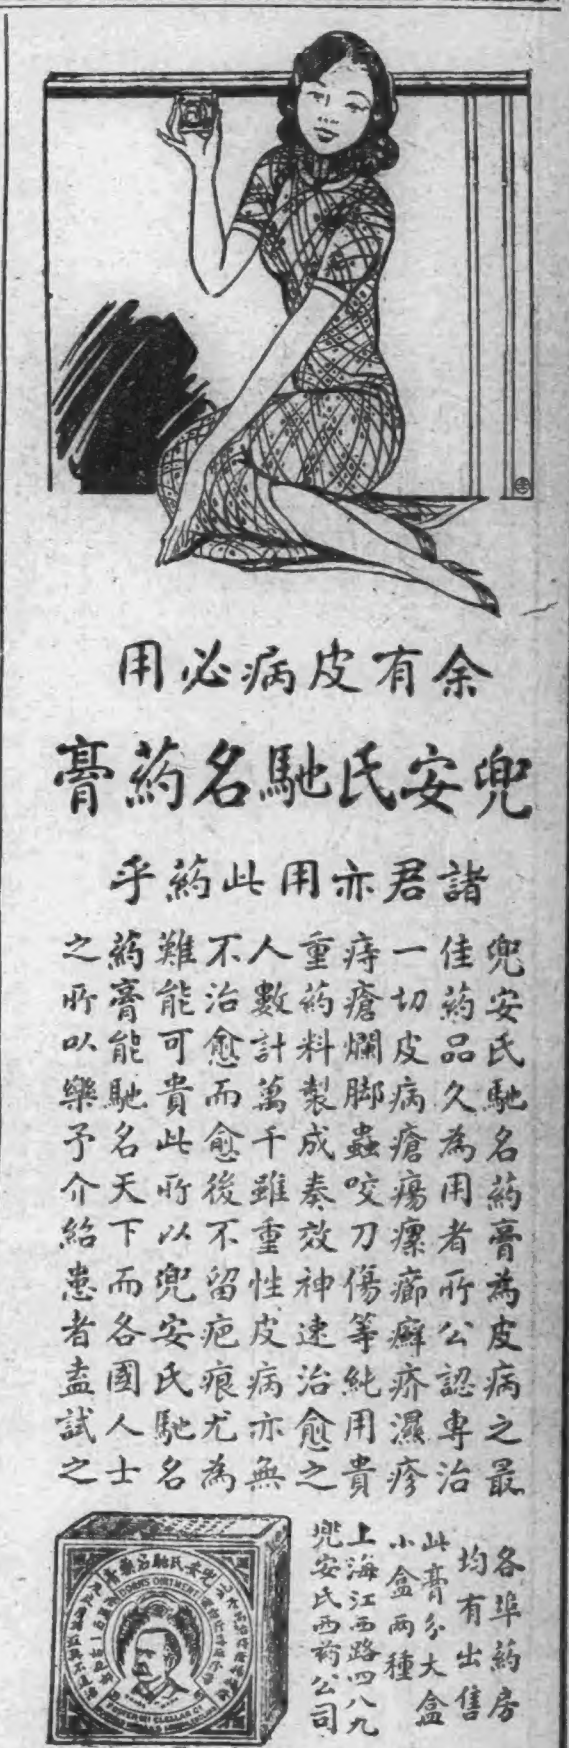 余有皮病必用
兜安氏馳名葯膏
諸君亦用此葯乎
兜安氏馳名葯膏為皮病之最
佳葯品久為用者所公認專治
一切皮病瘡瘍瘰癤癬疥濕疹
痔瘡爛脚蟲咬刀傷等純用貴
重葯料製成奏效神速治愈之
人數計萬千雖重性皮病亦無
不治愈而愈後不留疤痕尤為
難能可貴此所以兜安氏馳名
葯膏能馳名天下而各國人士
之所以樂予介紹患者盍試之
各埠葯房
均有出售
此膏分大盒
小盒兩種
上海江西路四八九
兜安氏西葯公司
兜安氏馳名藥膏
DOAN'S OINTMENT